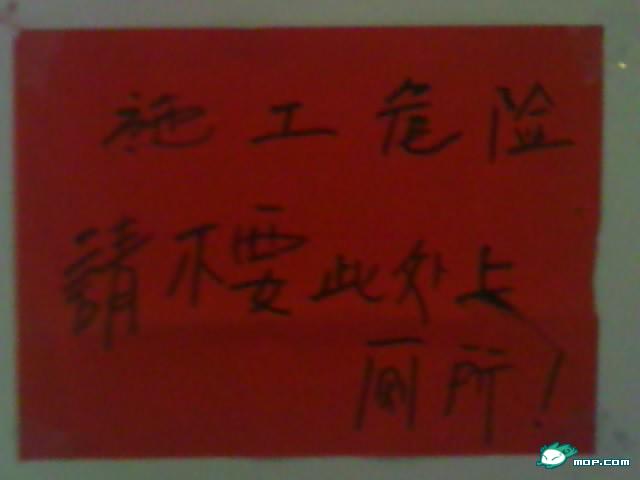 施工危险
請不要此处上
厕所！
mop.com